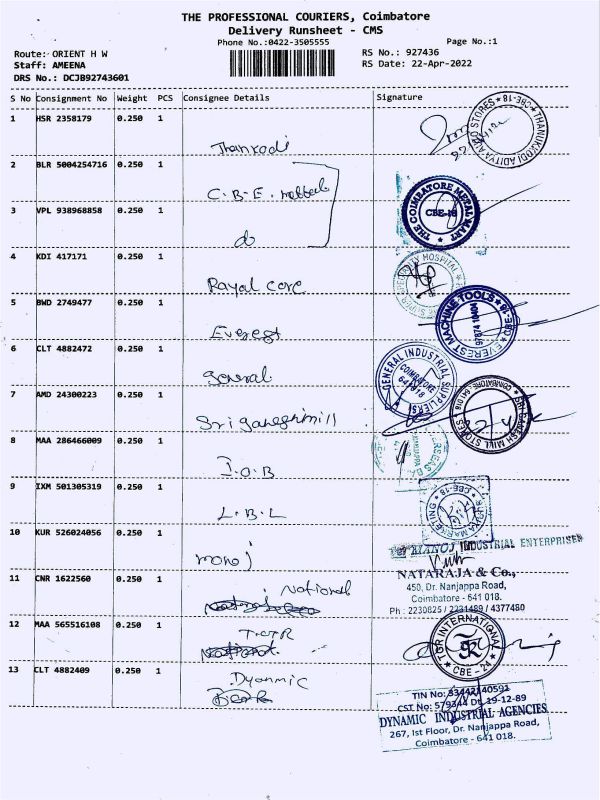 THE PROFESSIONAL COURIERS, Coimbatore
Delivery Runsheet - CMS
Phone No.:0422-3505555
Page No.:1
Route: ORIENT H W
RS No.: 927436
Staff: AMEENA
RS Date: 22-Apr-2022
DRS No.: DCJB92743601
S No Consignment No Weight PCS Consignee Details Signature
1 HSR 2358179 0.250 1
THANUKODI ADITYA AUTO STORES * CBE-18
2 BLR 5004254716 0.250 1
C.B.E.
THE COIMBATORE METAL MART
CBE-18
3 VPL 938968858 0.250 1
do
4 KDI 417171 0.250 1
Rayal care
SPECIALITY HOSPITAL
5 BWD 2749477 0.250 1
Everest
EVEREST MACHINE TOOLS * CBE-18
6 CLT 4882472 0.250 1
General
GENERAL INDUSTRIAL SUPPLIERS
COIMBATORE
641 018
7 AMD 24300223 0.250 1
Sri ganesh mill
SRI GANESH MILL STORES
COIMBATORE - 641 018
8 MAA 286466009 0.250 1
I.O.B
9 IXM 501305319 0.250 1
L.B.L
MARKETING * CBE-18
10 KUR 526024056 0.250 1
monoj
MANOJ INDUSTRIAL ENTERPRISES
11 CNR 1622560 0.250 1
National
NATARAJA & Co.,
450, Dr. Nanjappa Road,
Coimbatore - 641 018.
Ph : 2230825 / 2231489 / 4377480
12 MAA 565516108 0.250 1
T.G.R
TGR INTERNATIONAL
CBE - 24
13 CLT 4882409 0.250 1
Dyanmic
TIN No: 33442140591
CST No: 579344 Dt. 19-12-89
DYNAMIC INDUSTRIAL AGENCIES
267, Ist Floor, Dr. Nanjappa Road,
Coimbatore - 641 018.